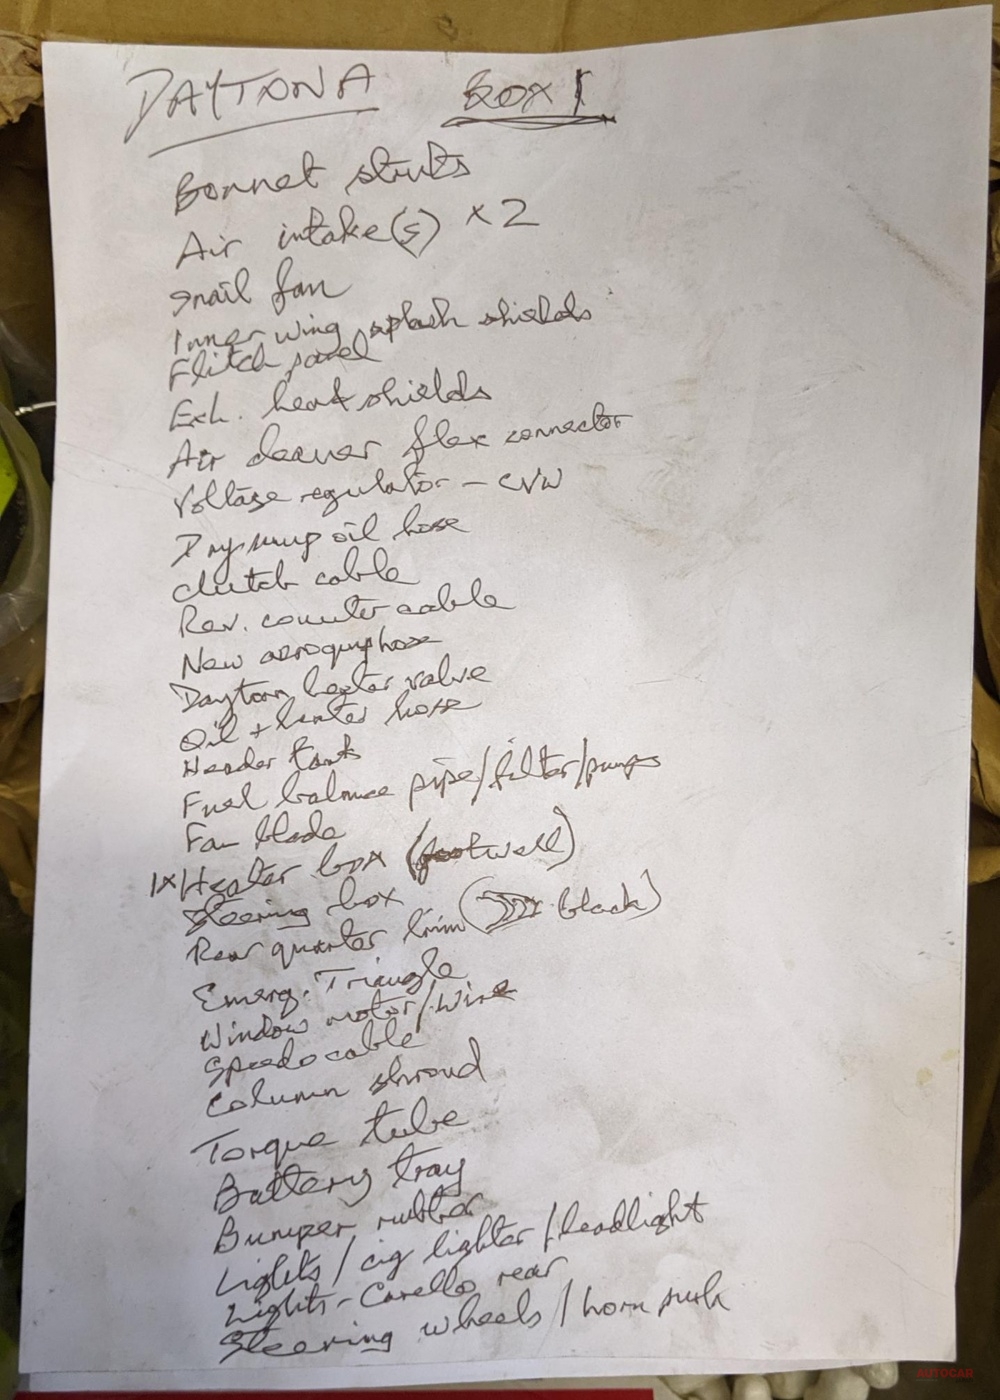 DAYTONA BOX 1
Bonnet struts
Air intake(s) x 2
Snail fan
Inner wing splash shields
Flitch panel
Exh. heat shields
Air cleaner flex connector
Voltage regulator -
Dry sump oil hose
Clutch cable
Rev. counter cable
New aeroquip hose
Daytona heater valve
Oil + heater hose
Header tank
Fuel balance pipe/filter/pumps
Fan blade
1x Heater box (footwell)
Steering box
Rear quarter trim ( black)
Emerg. Triangle
Window motor/wire
Speedo cable
Column shroud
Torque tube
Battery tray
Bumper rubber
Lights / cig lighter / headlight
Lights - Carello rear
Steering wheels / horn push
AUTOCAR